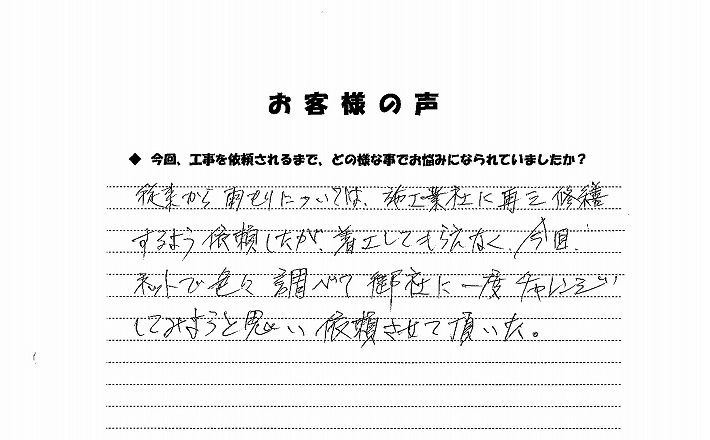 お客様の声
◆ 今回、工事を依頼されるまで、どの様な事でお悩みになられていましたか？
従来から雨もりについては、施工業社に再三修繕
するよう依頼したが、着工してもらえなく、今回、
ネットで色々調べて御社に一度チャレンジい
してみようと思い依頼させて頂いた。